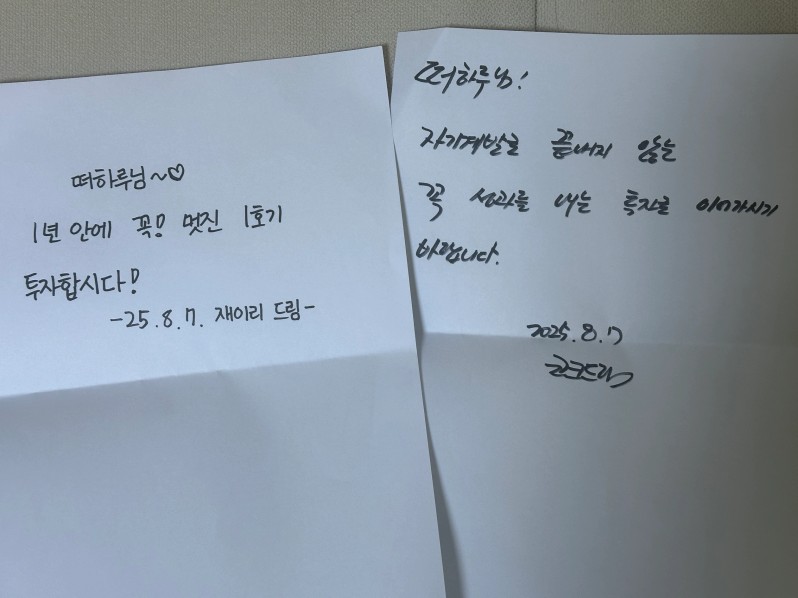 떠하루님~♡
1년 안에 꼭! 멋진 1호기
투자합시다!
-25.8.7. 재이리 드림-
떠하루님!
자기계발로 끝내지 않는
꼭 성과를 내는 투자로 이어가시기
바랍니다.
2025.8.7
드림